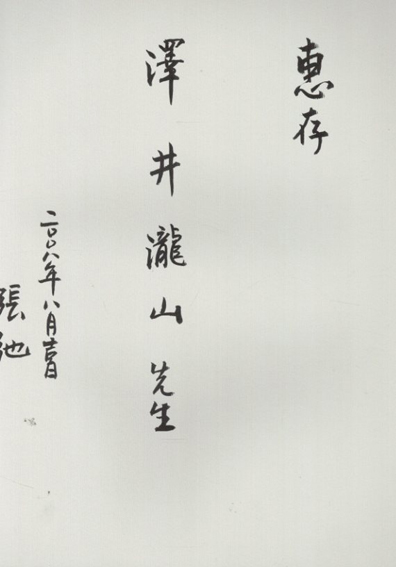 惠存
澤井瀧山先生
二〇〇八年八月吉日
張弛